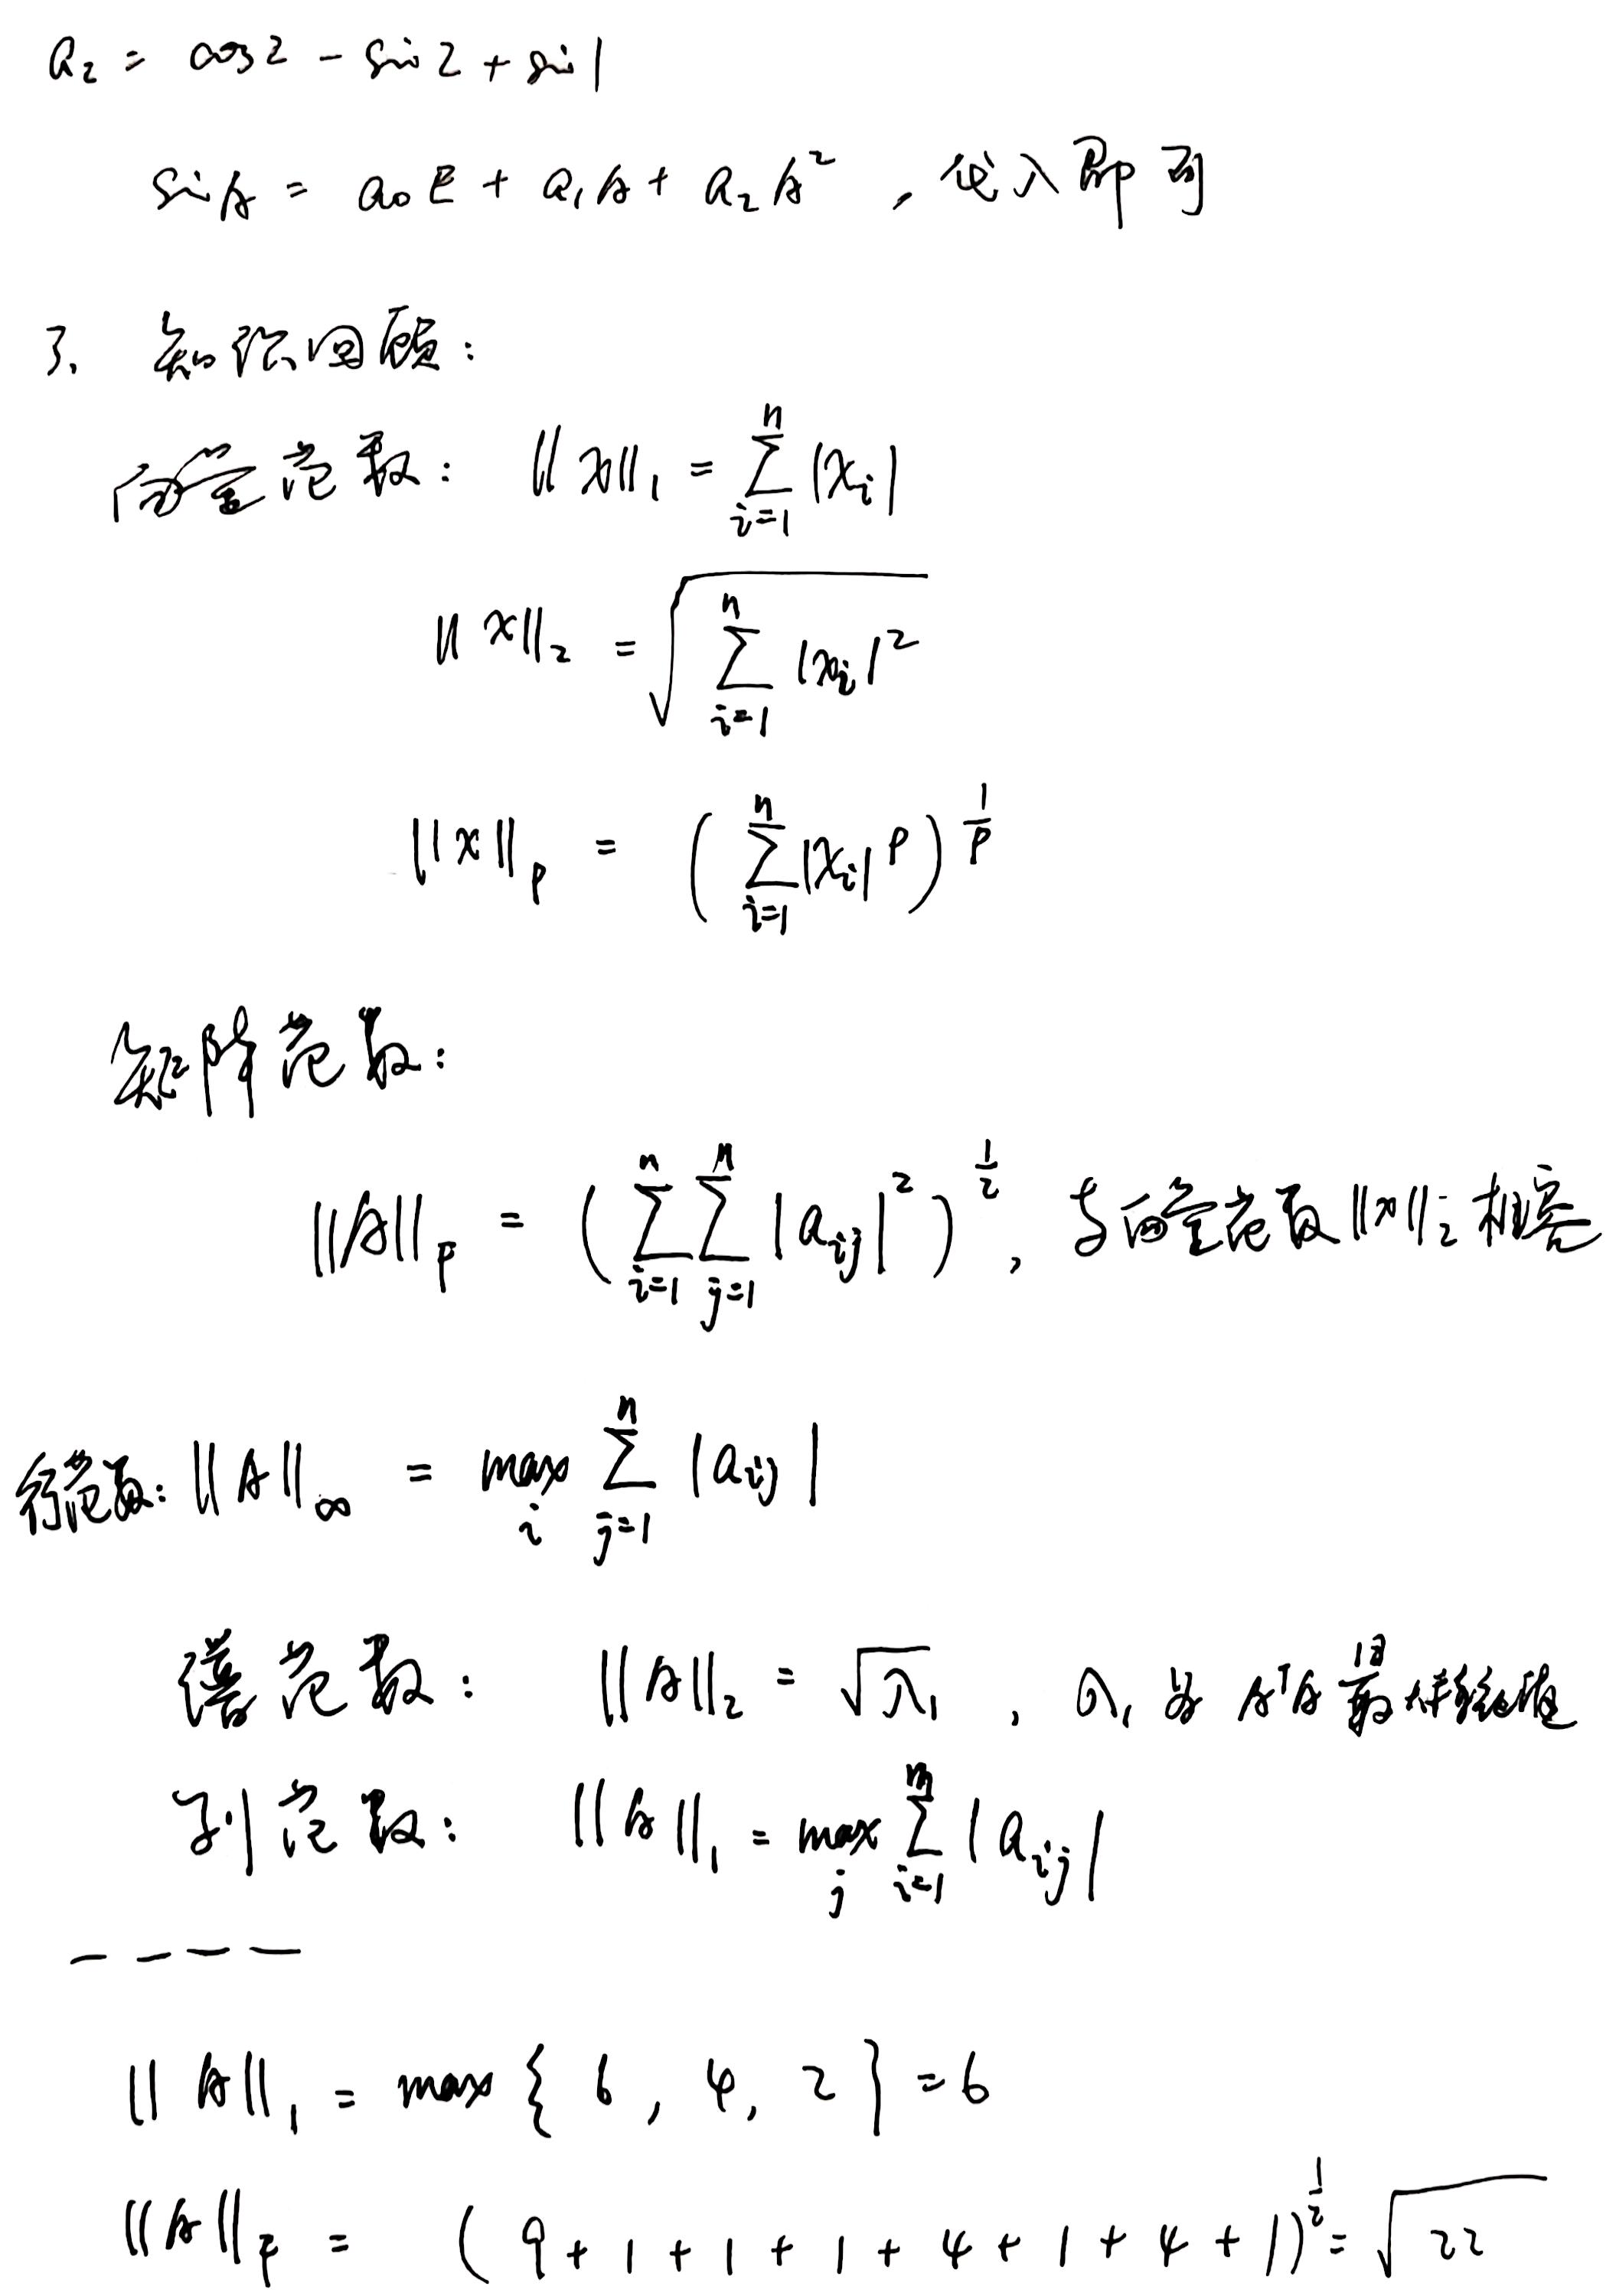 a₂ = cos2 - sin2 + sin1
sinA = a₀E + a₁A + a₂A² , 代入即可
3. 知识回顾:
向量范数: ||x||₁ = ∑_{i=1}^{n} |xᵢ|
||x||₂ = √(∑_{i=1}^{n} |xᵢ|²)
||x||ₚ = (∑_{i=1}^{n} |xᵢ|^p)^{1/p}
矩阵范数:
||A||_F = (∑_{i=1}^{n} ∑_{j=1}^{n} |a_{ij}|²)^{1/2} , 与向量范数||x||₂相容
行范数: ||A||_∞ = max_i ∑_{j=1}^{n} |a_{ij}|
谱范数: ||A||₂ = √λ₁ , λ₁为AᵀA最大特征值
列范数: ||A||₁ = max_j ∑_{i=1}^{m} |a_{ij}|
----
||A||₁ = max { 6 , 4, 2 } = 6
||A||_F = (9+1+1+1+4+1+4+1)^{1/2} = √22